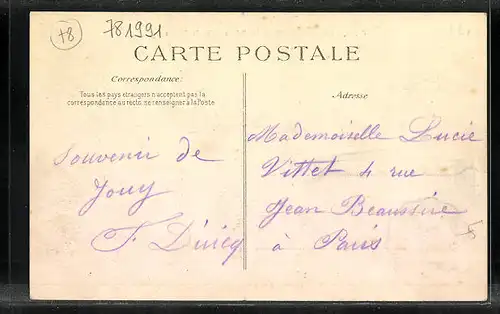 78
781991
CARTE POSTALE
Correspondance:
Tous les pays étrangers n'acceptent pas la
correspondance au recto, se renseigner à la Poste
Souvenir de
Jouy
F.
Adresse
Mademoiselle Lucie
Vittet 4 rue
Jean Beausire
à Paris